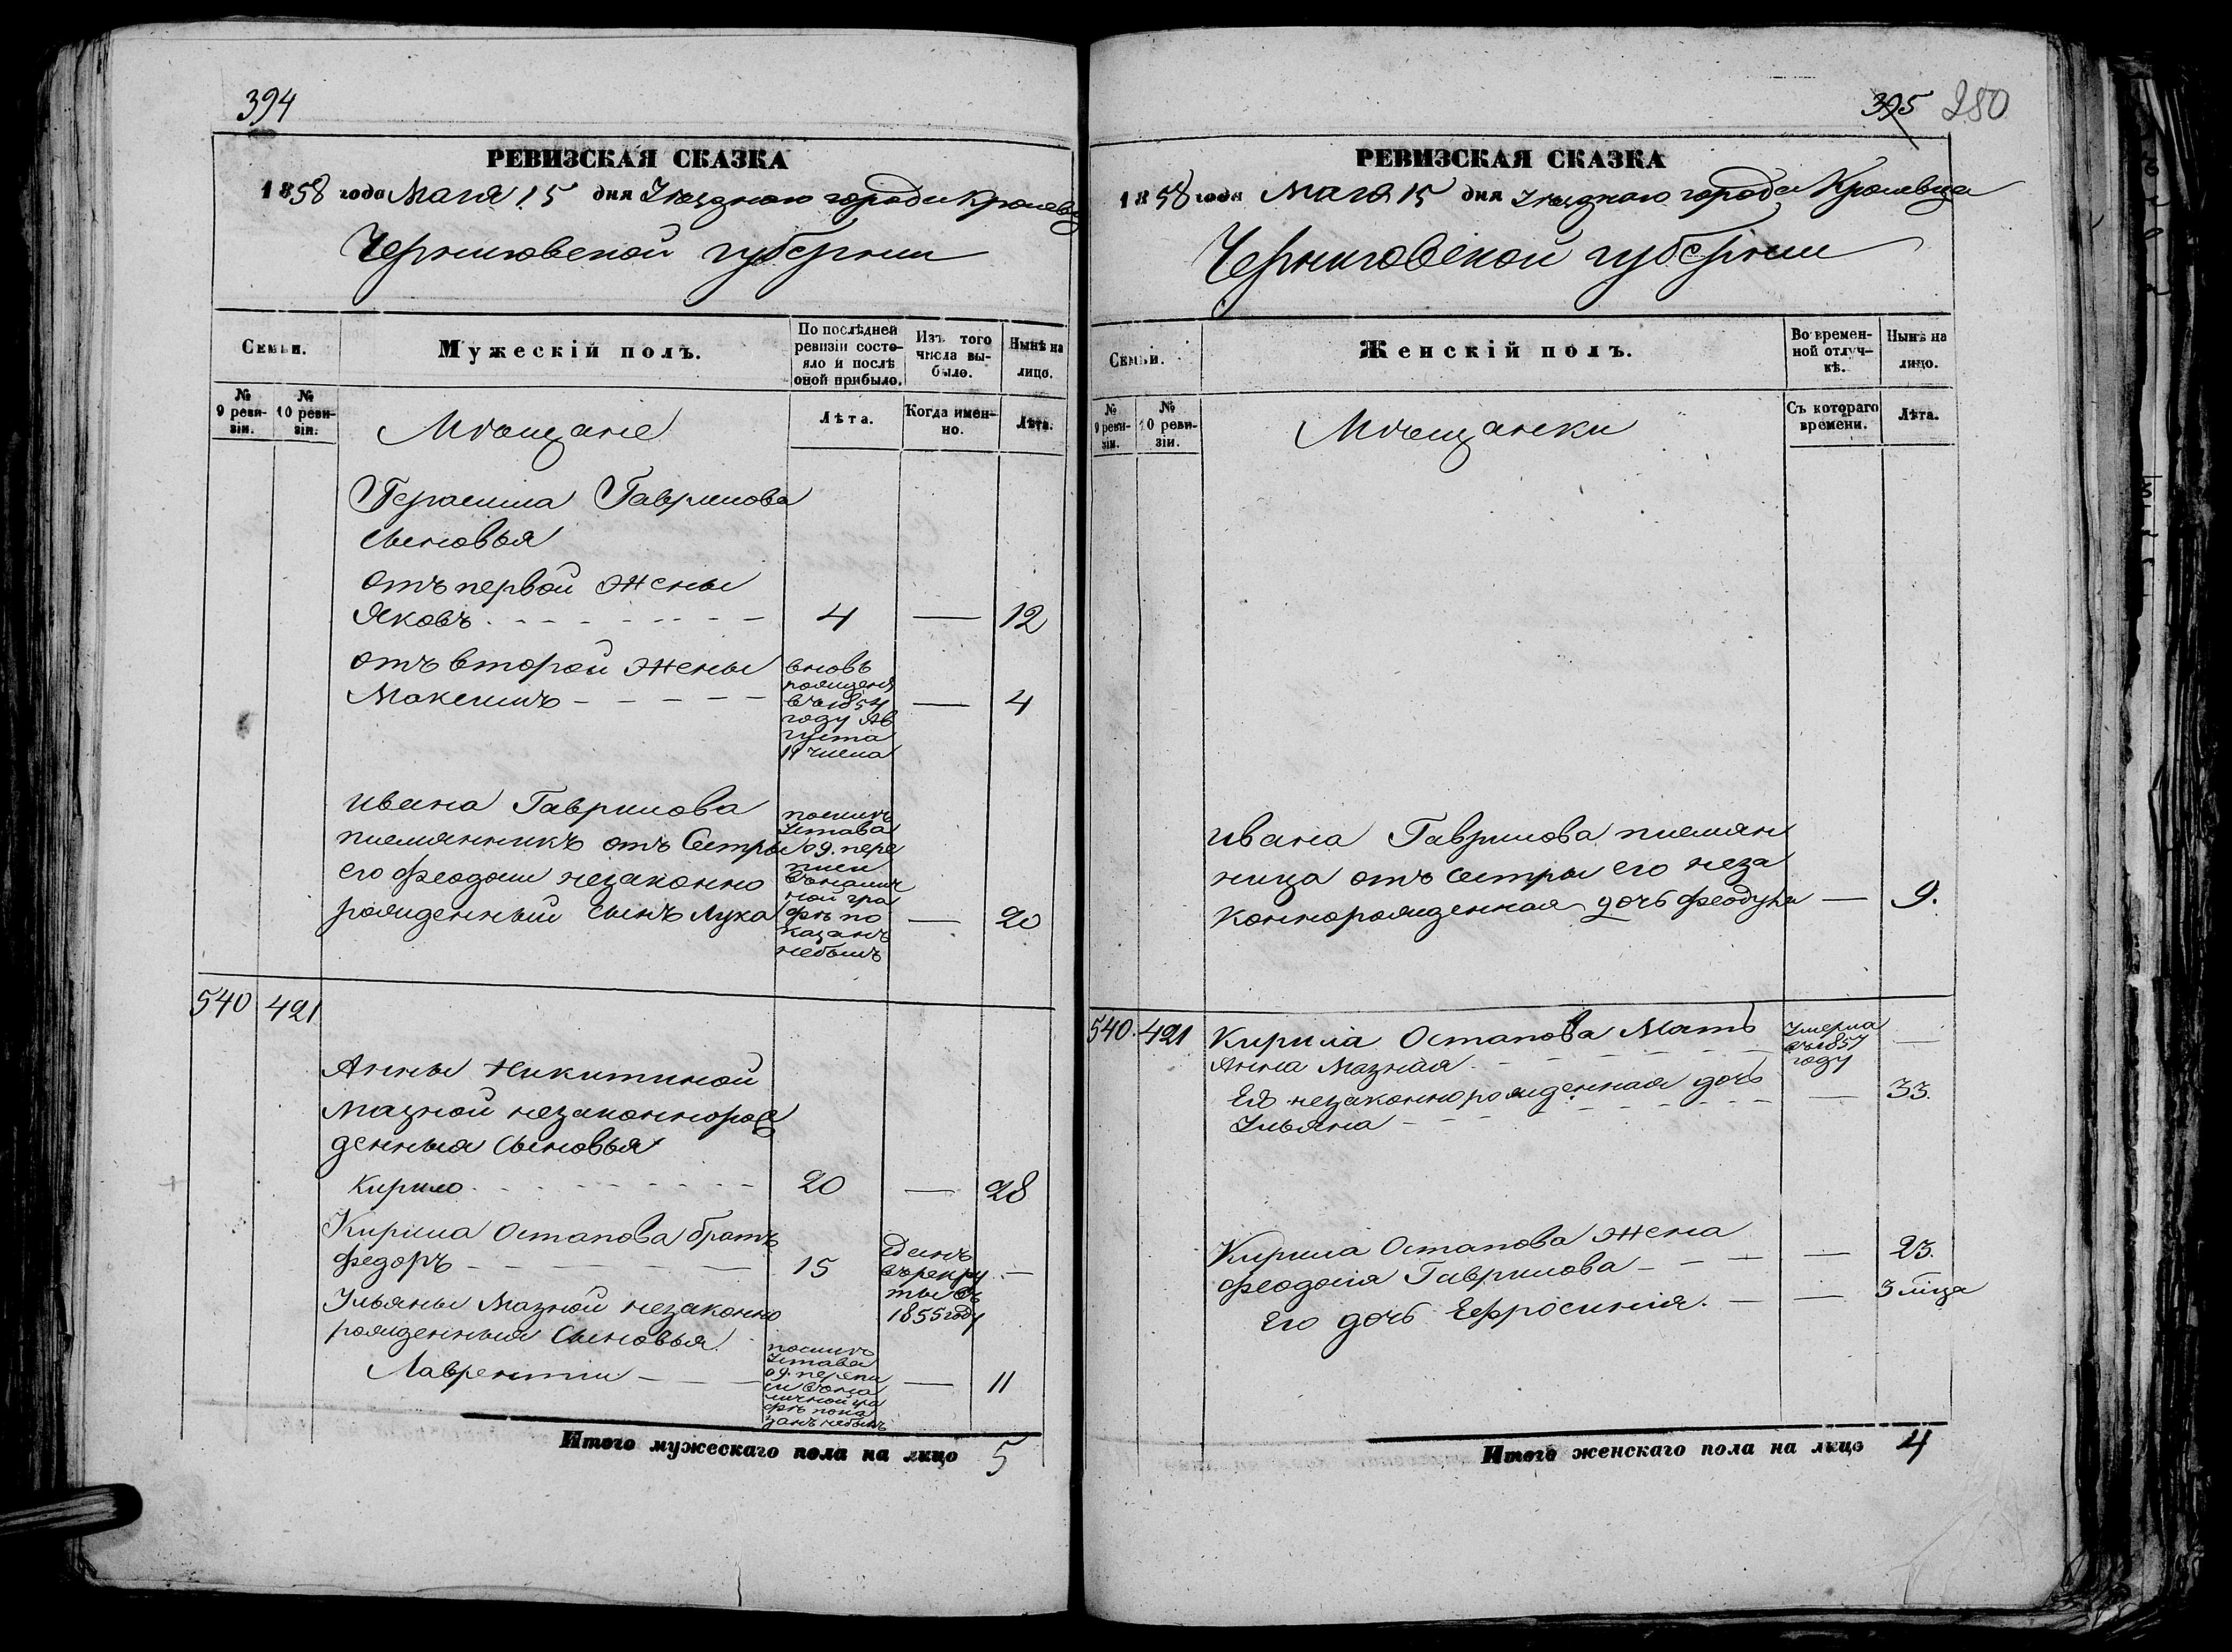 394
РЕВИЗСКАЯ СКАЗКА
1858 года Мая 15 дня Уѣзднаго города Кролевца
Черниговской губерніи
Семьи.
Мужескій полъ.
По послѣдней ревизіи состояло и послѣ оной прибыло.
Изъ того числа выбыло.
Нынѣ на лицо.
№ 9 ревизіи.
№ 10 ревизіи.
Мѣщане
Лѣта.
Когда именно.
Лѣта.
Герасима Гаврилова
сыновья
отъ первой жены
Яковъ 4 — 12
отъ второй жены
Максимъ — 4
вновь
рожденъ
въ 1854
году Ав
густа
числа
Ивана Гаврилова
племянникъ отъ Сестры
его Феодосіи незаконно
рожденный сынъ Лука — 20
Устава
о д. пере
писи
въ налич
ной гра
фѣ по
казанъ
небылъ
540 421
Анны Никитиной
Мазной незаконнорож
денныя сыновья
Кирило 20 — 28
Кирила Остапова братъ
Федоръ 15 —
въ рекру
ты въ
1855 году
Ульяны Мазной незаконно
рожденныя сыновья
Лаврентій — 11
Устава
о д. перепи
си въ на
личной гра
фѣ пока
занъ небылъ
Итого мужескаго пола на лицо 5
395 280
РЕВИЗСКАЯ СКАЗКА
1858 года Мая 15 дня Уѣзднаго города Кролевца
Черниговской губерніи
Семьи.
Женскій полъ.
Во временной отлучкѣ.
Нынѣ на лицо.
№ 9 ревизіи.
№ 10 ревизіи.
Мѣщанки
Съ котораго времени.
Лѣта.
Ивана Гаврилова племян
ница отъ Сестры его неза
коннорожденная дочь — 9.
540. 421 Кирила Остапова Мать
Анна Мазная —
Умерла
въ 1857
году
Ея незаконнорожденная дочь
Ульяна — 33.
Кирила Остапова жена
Феодосія Гаврилова — 23.
Его дочь Ефросинія. — 3 мѣсяца
Итого женскаго пола на лицо 4